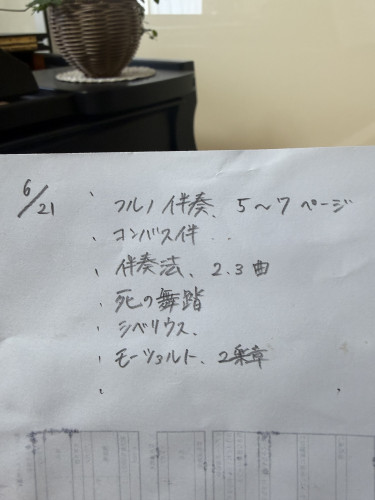 6/21
、フルノ伴奏、5〜7ページ
、コンバス伴 . .
、伴奏法、2.3曲
、死の舞踏
、シベリウス、
、モーツァルト、2楽章